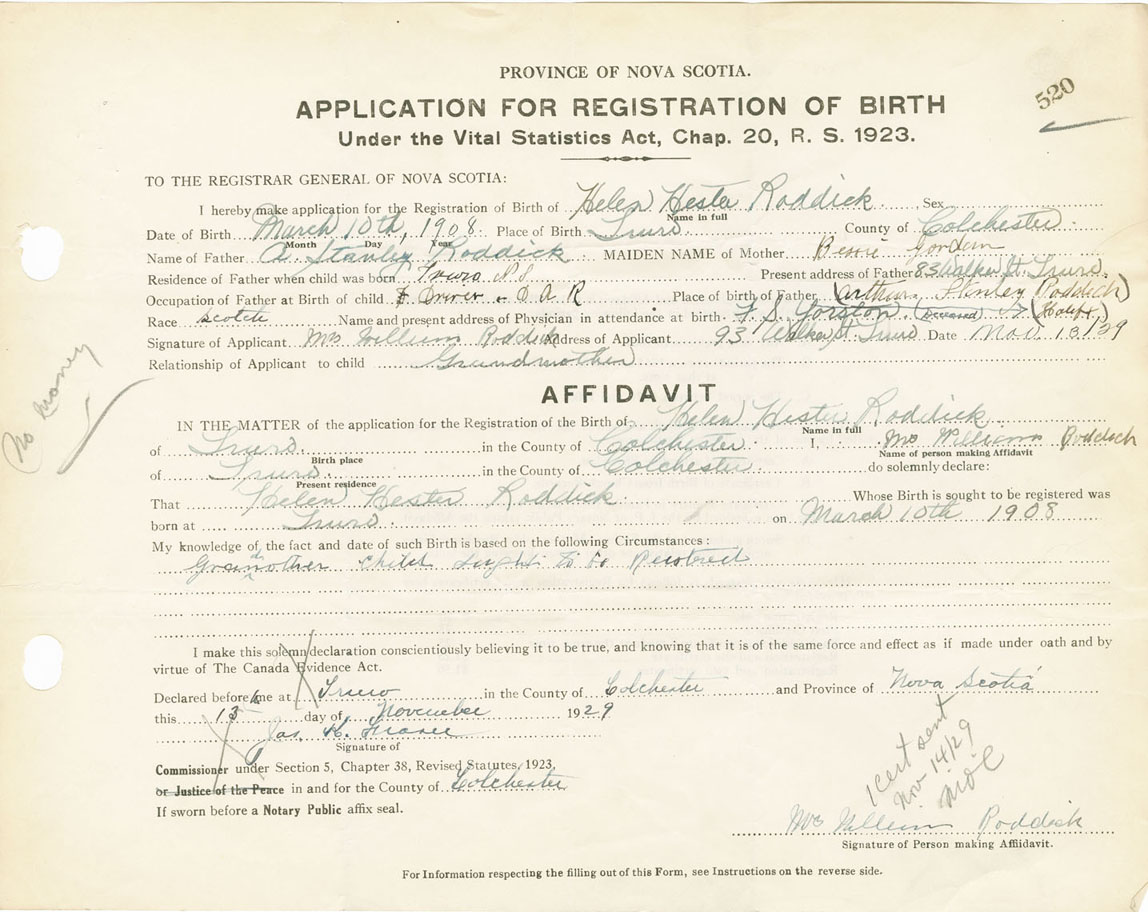 PROVINCE OF NOVA SCOTIA.
520
APPLICATION FOR REGISTRATION OF BIRTH
Under the Vital Statistics Act, Chap. 20, R. S. 1923.
TO THE REGISTRAR GENERAL OF NOVA SCOTIA:
I hereby make application for the Registration of Birth of Helen Hester Roddick Sex
Name in full
Date of Birth March 10th, 1908 Place of Birth Truro County of Colchester
Month Day Year
Name of Father A. Stanley Roddick MAIDEN NAME of Mother Bessie Gordon
Residence of Father when child was born Truro N.S. Present address of Father 83 Walker St. Truro
Occupation of Father at Birth of child Driver - D A R Place of birth of Father (Arthur Stanley Roddick)
Race Scotch Name and present address of Physician in attendance at birth F. S. Yorston (Deceased) (Halifx)
Signature of Applicant Mrs William Roddick Address of Applicant 93 Walker St Truro Date Nov. 13/29
Relationship of Applicant to child Grandmother
No money
AFFIDAVIT
IN THE MATTER of the application for the Registration of the Birth of Helen Hester Roddick
Name in full
of Truro in the County of Colchester I, Mrs William Roddick
Birth place Name of person making Affidavit
of Truro in the County of Colchester do solemnly declare:
Present residence
That Helen Hester Roddick Whose Birth is sought to be registered was
born at Truro on March 10th 1908
My knowledge of the fact and date of such Birth is based on the following Circumstances:
Grandmother Child
I make this solemn declaration conscientiously believing it to be true, and knowing that it is of the same force and effect as if made under oath and by
virtue of The Canada Evidence Act.
Declared before me at Truro in the County of Colchester and Province of Nova Scotia
this 13 day of November 1929
Jas. K. Fraser
Signature of
Commissioner under Section 5, Chapter 38, Revised Statutes, 1923,
or Justice of the Peace in and for the County of Colchester
If sworn before a Notary Public affix seal.
1 cert sent
Nov 14/29
Mrs William Roddick
Signature of Person making Affidavit.
For Information respecting the filling out of this Form, see Instructions on the reverse side.